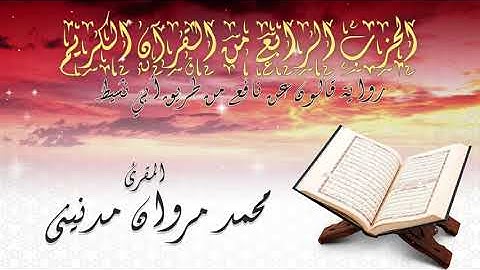 الحزب الرابع من القرآن الكريم
رواية قالون عن نافع من طريق أبي نشيط
المقرئ
محمد مروان مدنيني